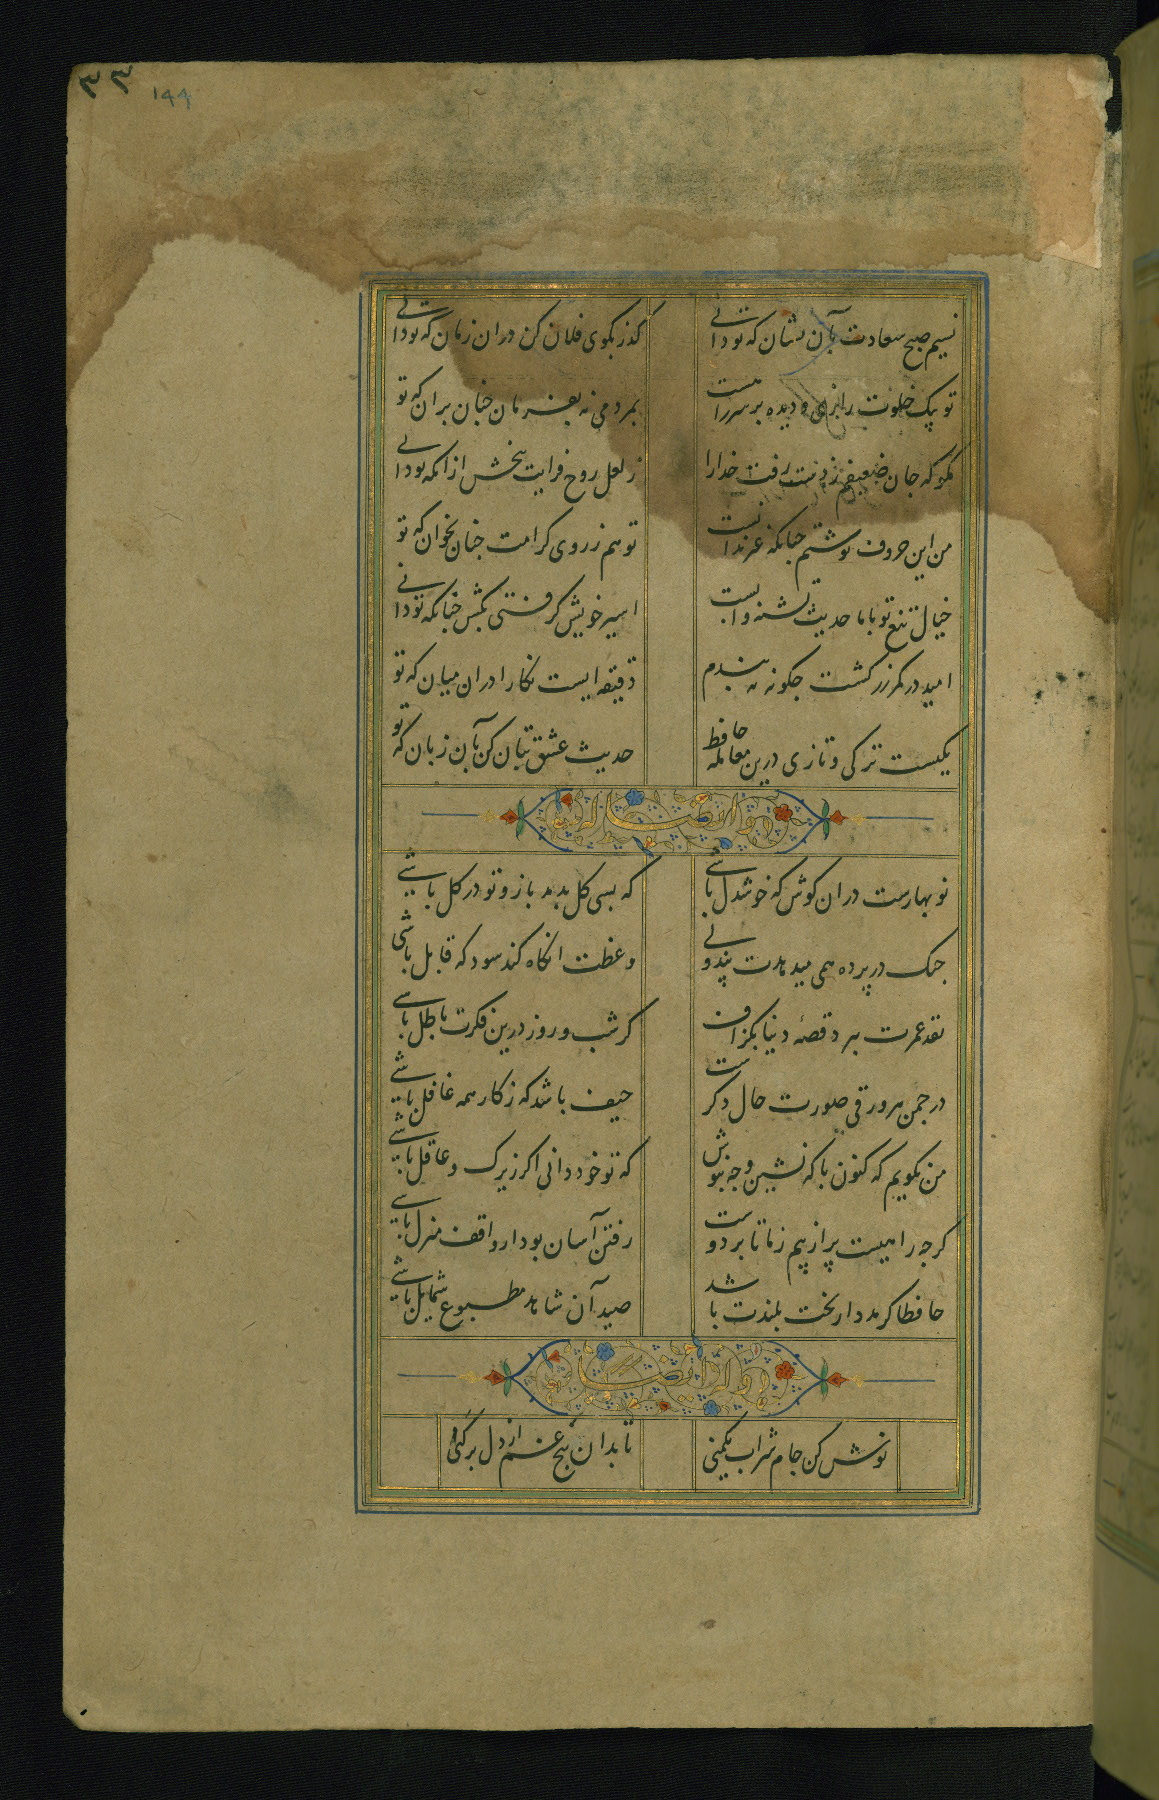 ۳۳ ۱۹۹
نسیم صبح سعادت بآن نشان که تو دانی
کذر بکوی فلان کن دران زمان که تو دانی
تو پیک خلوت رازی و دیده بر سر راهست
بمردمی نه بفرمان جنان بران که تو
بکو که جان ضعیفم ز دست رفت خدارا
ز لعل روح فزایت ببخش ازانکه تو دانی
من این حروف نوشتم جنانکه غیر ندانست
تو هم ز روی کرامت جنان بخوان که تو
خیال تیغ تو با ما حدیث تشنه و آبست
اسیر خویش کرفتی بکش جنانکه تو دانی
امید در کمر زرکشت جکونه نه بندم
دقیقه ایست نکارا دران میان که تو
یکیست ترکی و تازی درین معامله حافظ
حدیث عشق بیان کن بآن زبان که تو
وله ایضا
نو بهارست دران کوش که خوشدل باشی
که بسی کل بدمد باز و تو در کل باشی
جنک در پرده همی میدهدت پند ولی
وعظت انکاه کند سود که قابل باشی
نقد عمرت ببرد قصهٔ دنیا بکزاف
کر شب و روز درین فکرت باطل باشی
در جمن هر ورقی صورت حال دکرست
حیف باشد که ز کار همه غافل باشی
من نکویم که کنون با که نشین و جه بنوش
که تو خود دانی اکر زیرک و عاقل باشی
کرجه راهیست پر از بیم ز ما تا بر دوست
رفتن آسان بود ار واقف منزل باشی
حافظا کر مدد از بخت بلندت باشد
صید آن شاهد مطبوع شمایل باشی
وله ایضا
نوش کن جام شراب یکمنی
تا بدان بیخ غم از دل برکنی